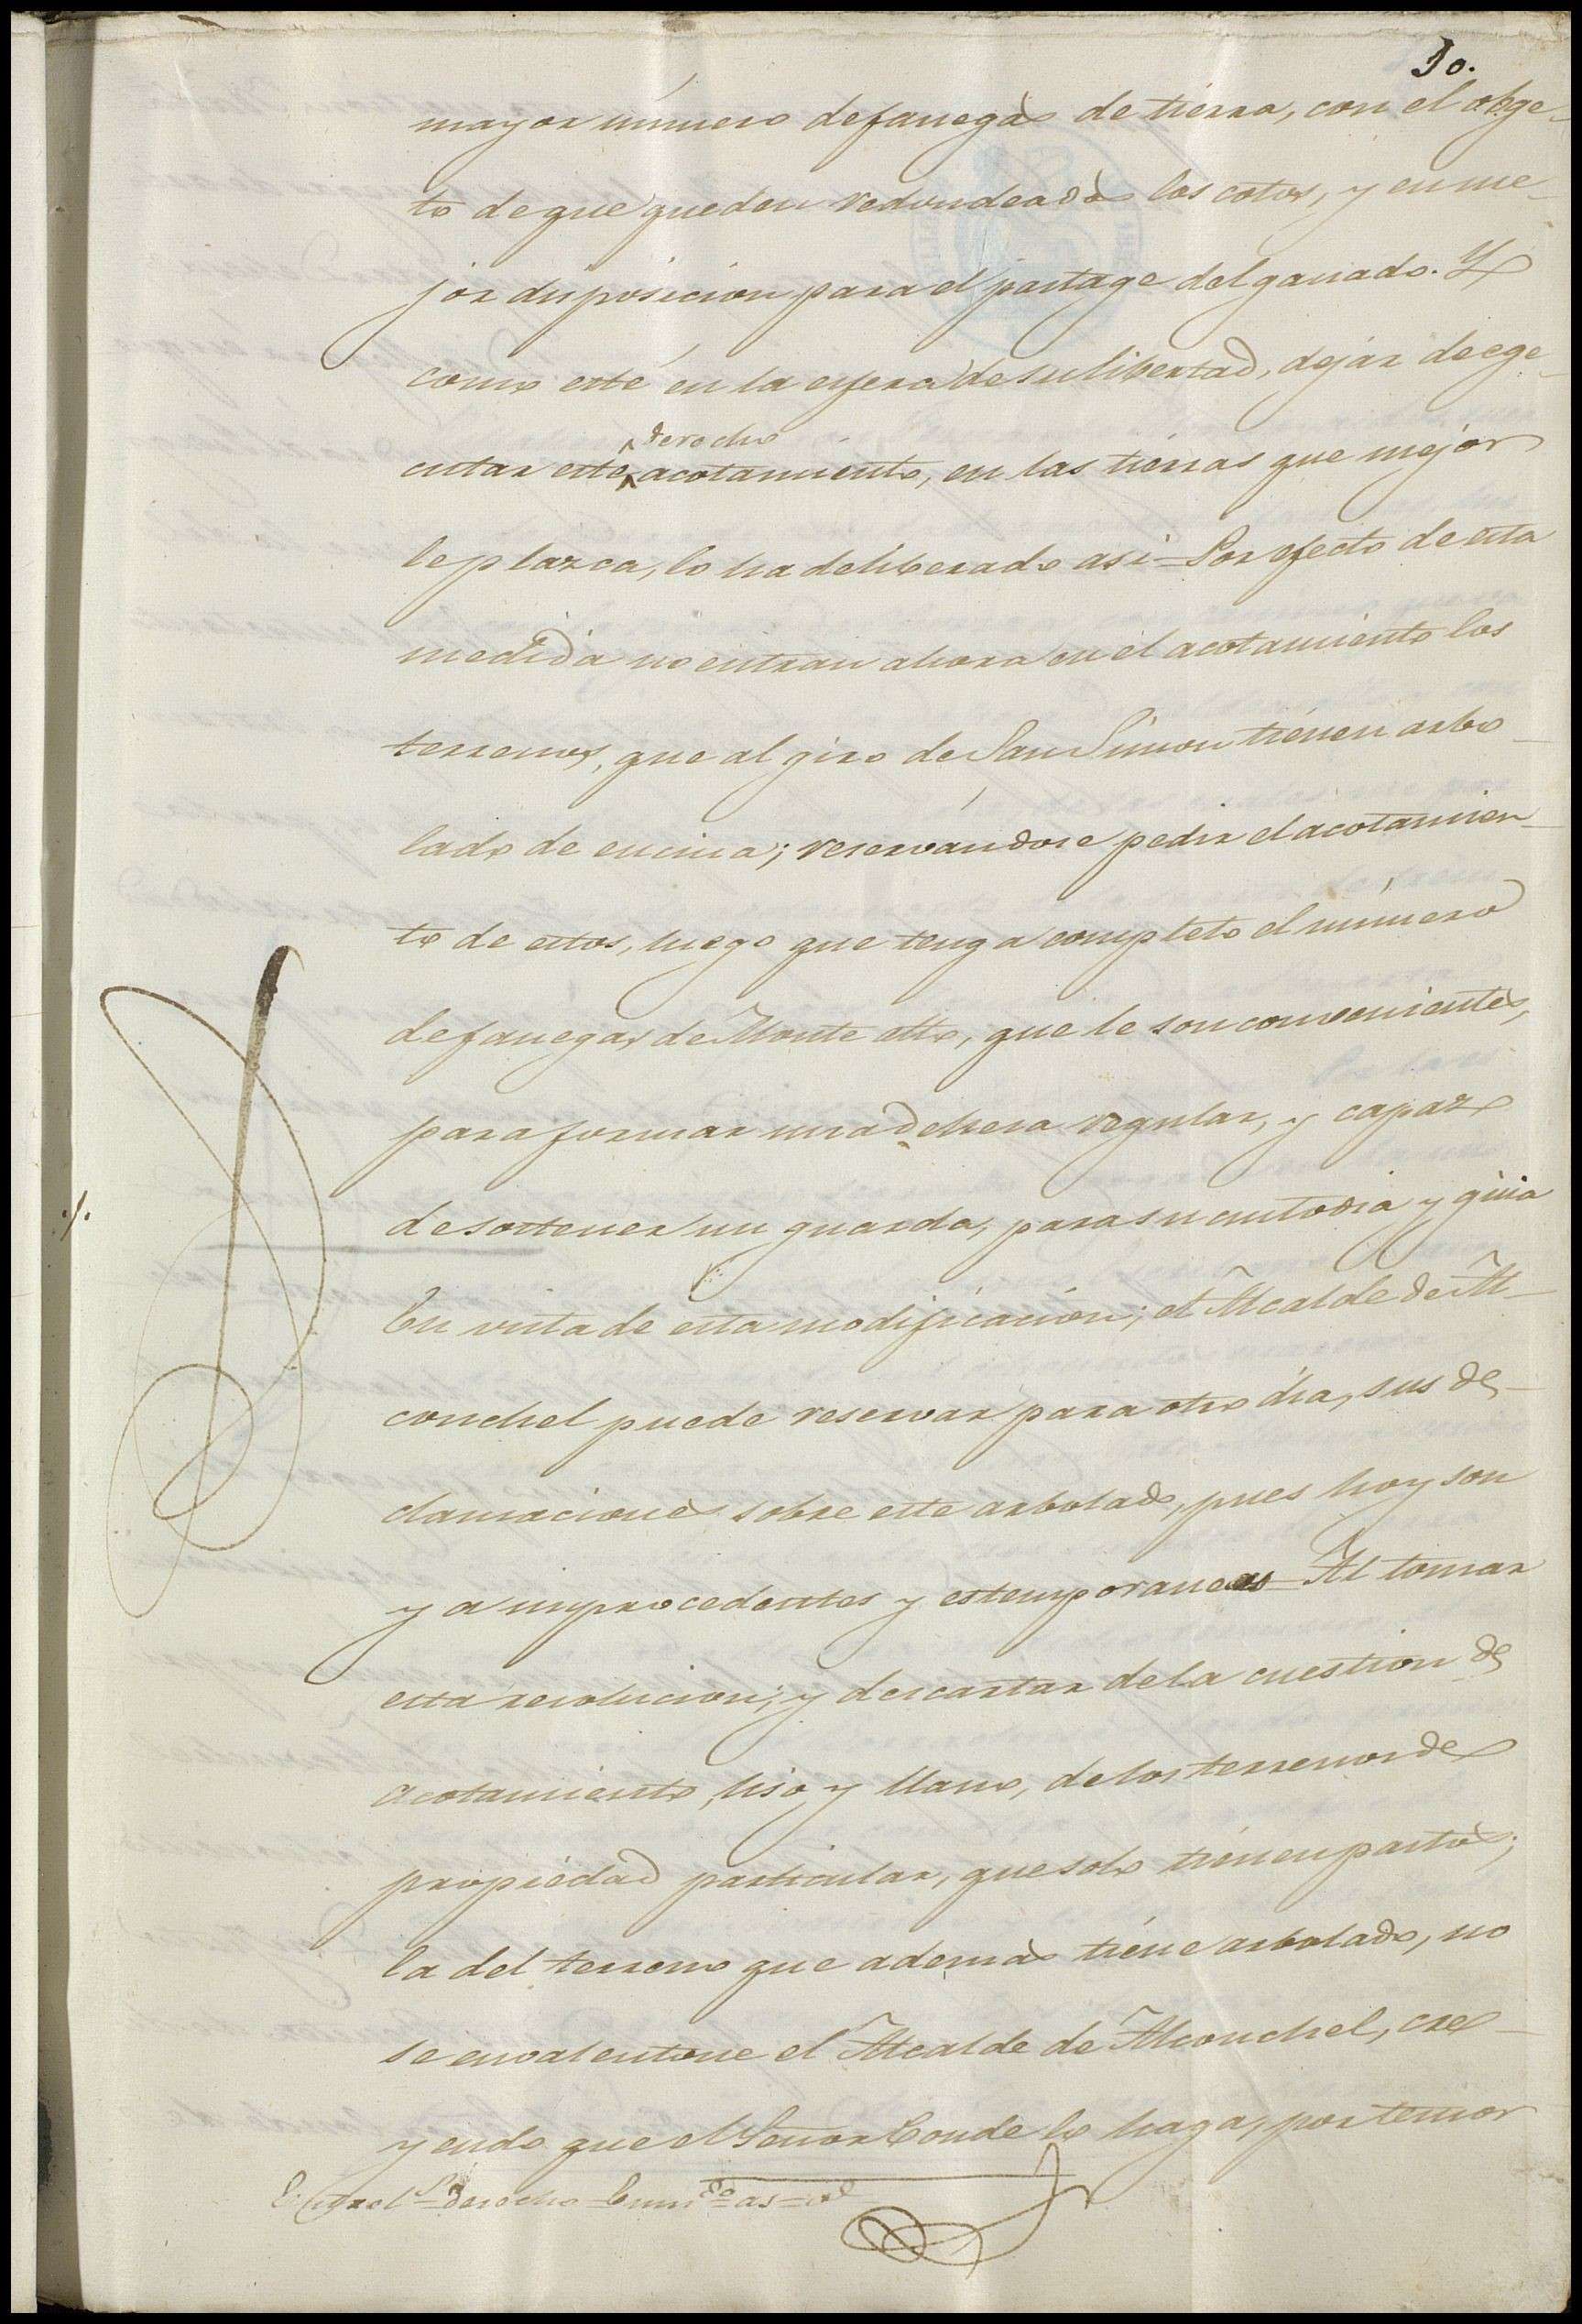 30.
mayor número de fanegas de tierra, con el obge-
to de que queden redondeados los cotos, y en me-
jor disposicion para el pastage del ganado. Y
como esté en la esfera de su libertad, dejar de ege-
derecho
cutar este acotamiento, en las tierras que mejor
le plazca, lo ha deliberado asi = Por efecto de esta
medida no entran ahora en el acotamiento los
terrenos, que al giro de San Simon tienen arbo-
lado de encina; reservándose pedir el acotamien-
to de estos, luego que tenga completo el número
de fanegas de Monte alto, que le son convenientes,
para formar una dehesa regular, y capaz
de sostener un guarda, para su custodia y guia
En vista de esta modificacion; el Alcalde de Al-
conchel puede reservar para otro dia, sus de-
clamaciones sobre este arbolado, pues hoy son
ya improcedentes y estemporaneas = Al tomar
esta resolucion; y descartar de la cuestion de
acotamiento, liso y llano, de los terrenos de
propiedad particular, que solo tienen pastos;
la del terreno que además tiene arbolado, no
se envalentone el Alcalde de Alconchel, cre-
yendo que el Señor Conde lo haga, por temor
Entrel.s = derecho = Enm.do = as =